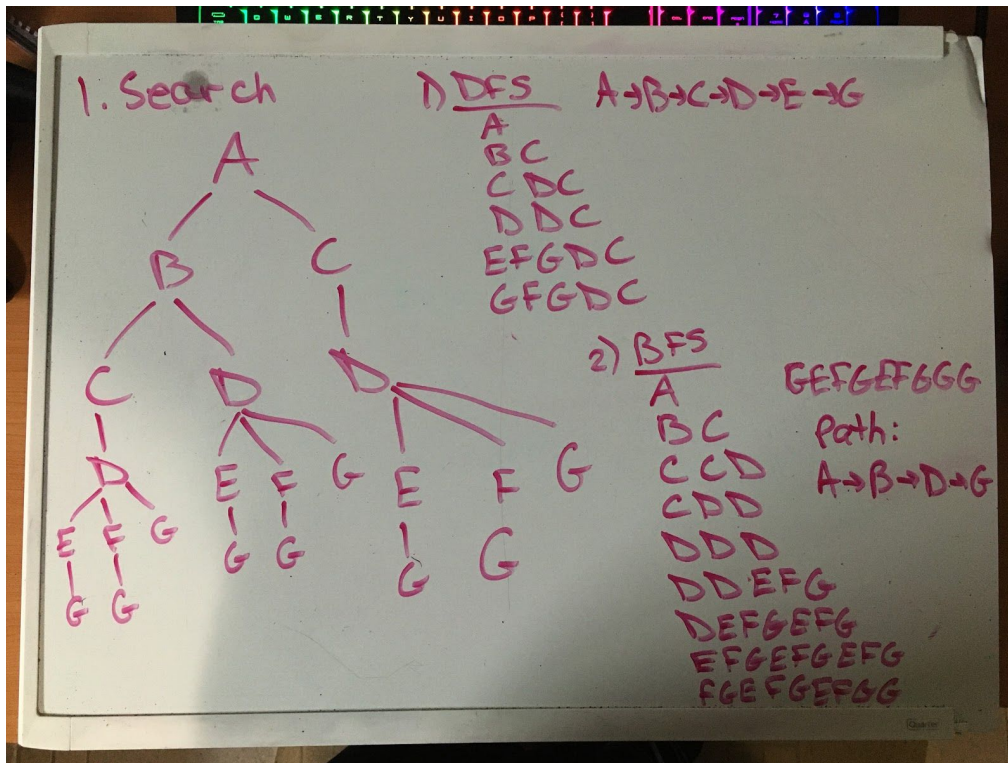 1. Search
A
B C
C D D
D E F G E F G
E F G G G G G
G G
1) DFS A→B→C→D→E→G
A
BC
CDC
DDC
EFGDC
GFGDC
2) BFS
A
BC
CCD
CDD
DDD
DDEFG
DEFGEFG
EFGEFGEFG
FGEFGEFGG
GEFGEFGGG
Path:
A→B→D→G
Q W E R T Y U I O P